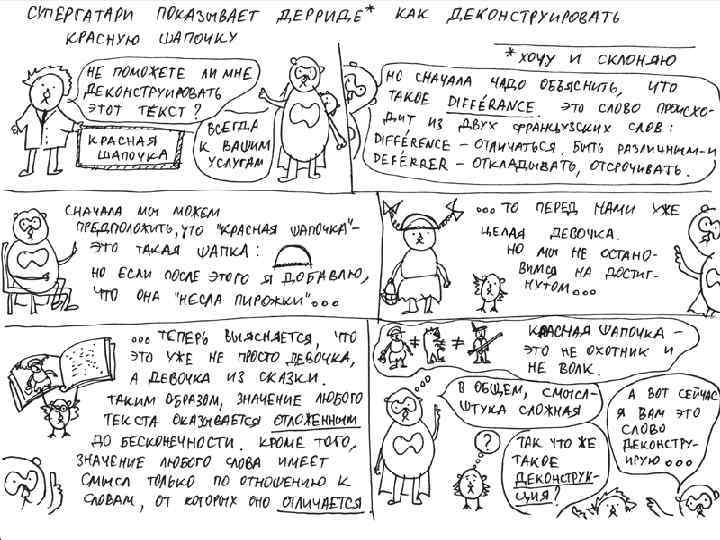 СУПЕРГАТАРИ ПОКАЗЫВАЕТ ДЕРРИДЕ* КАК ДЕКОНСТРУИРОВАТЬ
КРАСНУЮ ШАПОЧКУ
*ХОЧУ И СКЛОНЯЮ
НЕ ПОМОЖЕТЕ ЛИ МНЕ
ДЕКОНСТРУИРОВАТЬ
ЭТОТ ТЕКСТ?
КРАСНАЯ
ШАПОЧКА
ВСЕГДА
К ВАШИМ
УСЛУГАМ
НО СНАЧАЛА НАДО ОБЪЯСНИТЬ, ЧТО
ТАКОЕ DIFFÉRANCE. ЭТО СЛОВО ПРОИСХО-
ДИТ ИЗ ДВУХ ФРАНЦУЗСКИХ СЛОВ:
DIFFÉRENCE – ОТЛИЧАТЬСЯ, БЫТЬ РАЗЛИЧНЫМ – И
DEFÉRRER – ОТКЛАДЫВАТЬ, ОТСРОЧИВАТЬ.
СНАЧАЛА МЫ МОЖЕМ
ПРЕДПОЛОЖИТЬ, ЧТО "КРАСНАЯ ШАПОЧКА" –
ЭТО ТАКАЯ ШАПКА:
НО ЕСЛИ ПОСЛЕ ЭТОГО Я ДОБАВЛЮ,
ЧТО ОНА "НЕСЛА ПИРОЖКИ"...
...ТО ПЕРЕД НАМИ УЖЕ
ЦЕЛАЯ ДЕВОЧКА.
НО МЫ НЕ ОСТАНО-
ВИМСЯ НА ДОСТИГ-
НУТОМ...
...ТЕПЕРЬ ВЫЯСНЯЕТСЯ, ЧТО
ЭТО УЖЕ НЕ ПРОСТО ДЕВОЧКА,
А ДЕВОЧКА ИЗ СКАЗКИ.
ТАКИМ ОБРАЗОМ, ЗНАЧЕНИЕ ЛЮБОГО
ТЕКСТА ОКАЗЫВАЕТСЯ ОТЛОЖЕННЫМ
ДО БЕСКОНЕЧНОСТИ. КРОМЕ ТОГО,
ЗНАЧЕНИЕ ЛЮБОГО СЛОВА ИМЕЕТ
СМЫСЛ ТОЛЬКО ПО ОТНОШЕНИЮ К
СЛОВАМ, ОТ КОТОРЫХ ОНО ОТЛИЧАЕТСЯ
≠ ≠
КРАСНАЯ ШАПОЧКА –
ЭТО НЕ ОХОТНИК И
НЕ ВОЛК.
В ОБЩЕМ, СМЫСЛ –
ШТУКА СЛОЖНАЯ
?
ТАК ЧТО ЖЕ
ТАКОЕ
ДЕКОНСТРУК-
ЦИЯ?
А ВОТ СЕЙЧАС
Я ВАМ ЭТО
СЛОВО
ДЕКОНСТРУ-
ИРУЮ...